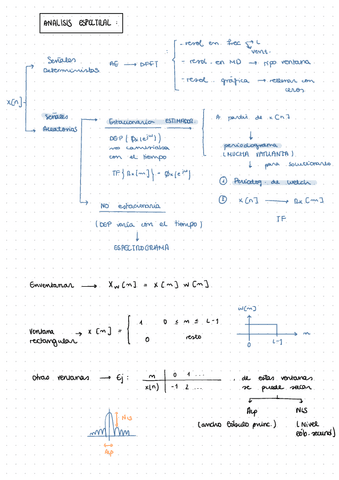 ANALISIS ESPECTRAL :
x[n]
Señales deterministas
AE → DFFT
- resol en frec → L
vens.
- resol. en MD → tipo ventana
- resol. gráfica → rellenar con ceros
Señales Aleatorias
Estacionaria ESTIMADOR
DEP { (e^jω)
no cambia
con el tiempo
A partir de x[n]
periodograma
(MUCHA VARIANZA)
para solucionarlo
① Periodog. de Welch
② x[n] →
TF
NO estacionaria
(DEP varía con el tiempo)
ESPECTROGRAMA
Enventanar → Xw[n] = x[n] w[n]
Ventana rectangular → x[n] = { 1 0 ≤ n ≤ L-1
0 resto
w[n]
L-1
n
Otras ventanas → Ej:
n 0 1 ...
x(n) -1 2 ...
. de estas ventanas
se puede sacar
NLS
Δlp
Δlp
(ancho lóbulo princ.)
NLS
(Nivel
lób. secund)